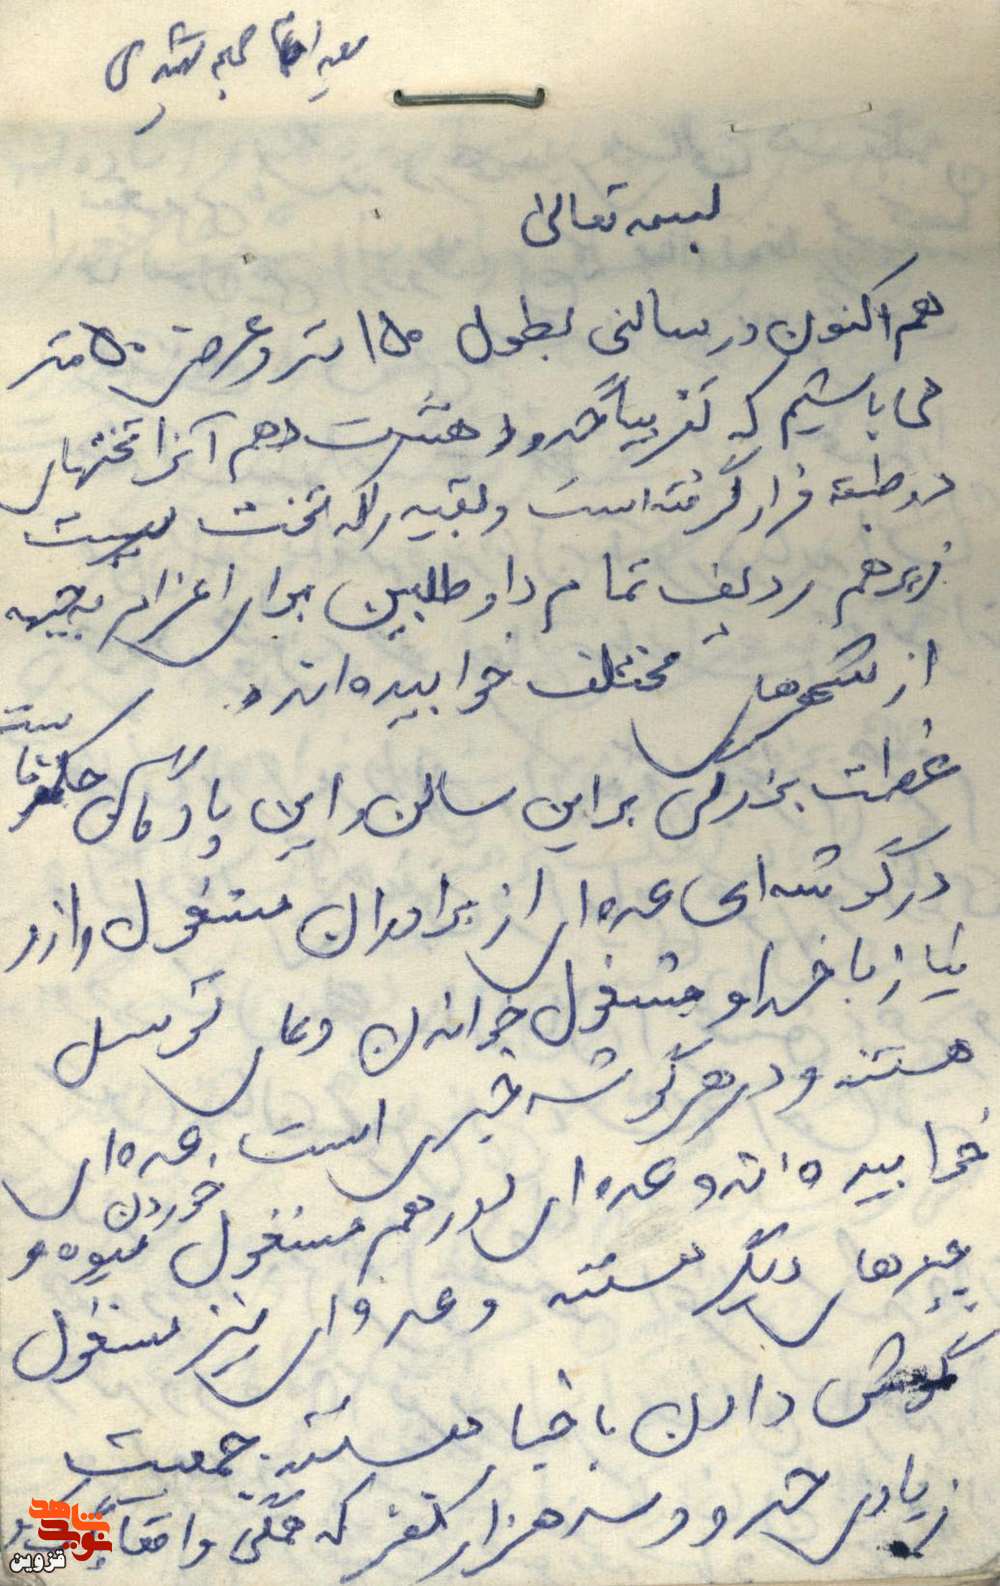 بسمه تعالی
هم اکنون در سالنی بطول ۱۵۰ متر و عرض ۵۰ متر
می باشیم که تقریباً حدود هشت دهم آنرا تختهای
دو طبقه قرار گرفته است و بقیه را که تخت نیست
زیر هم ردیف تمام داوطلبین برای اعزام به جبهه
از شهرهای مختلف خوابیده اند.
عظمت بزرگی بر این سالن و این پادگان حکمفرماست
در گوشه ای عده ای از برادران مشغول راز و
نیاز با خدا و مشغول خواندن دعای توسل
هستند و در هر گوشه خبری است. عده ای
خوابیده اند و عده ای دور هم مشغول خوردن میوه و
چیزهای دیگر هستند و عده ای نیز مشغول
گوش دادن باخبار هستند. جمعیت
زیادی حدود سه هزار نفر که همگی واقعاً
شاهد
نوید
قزوین